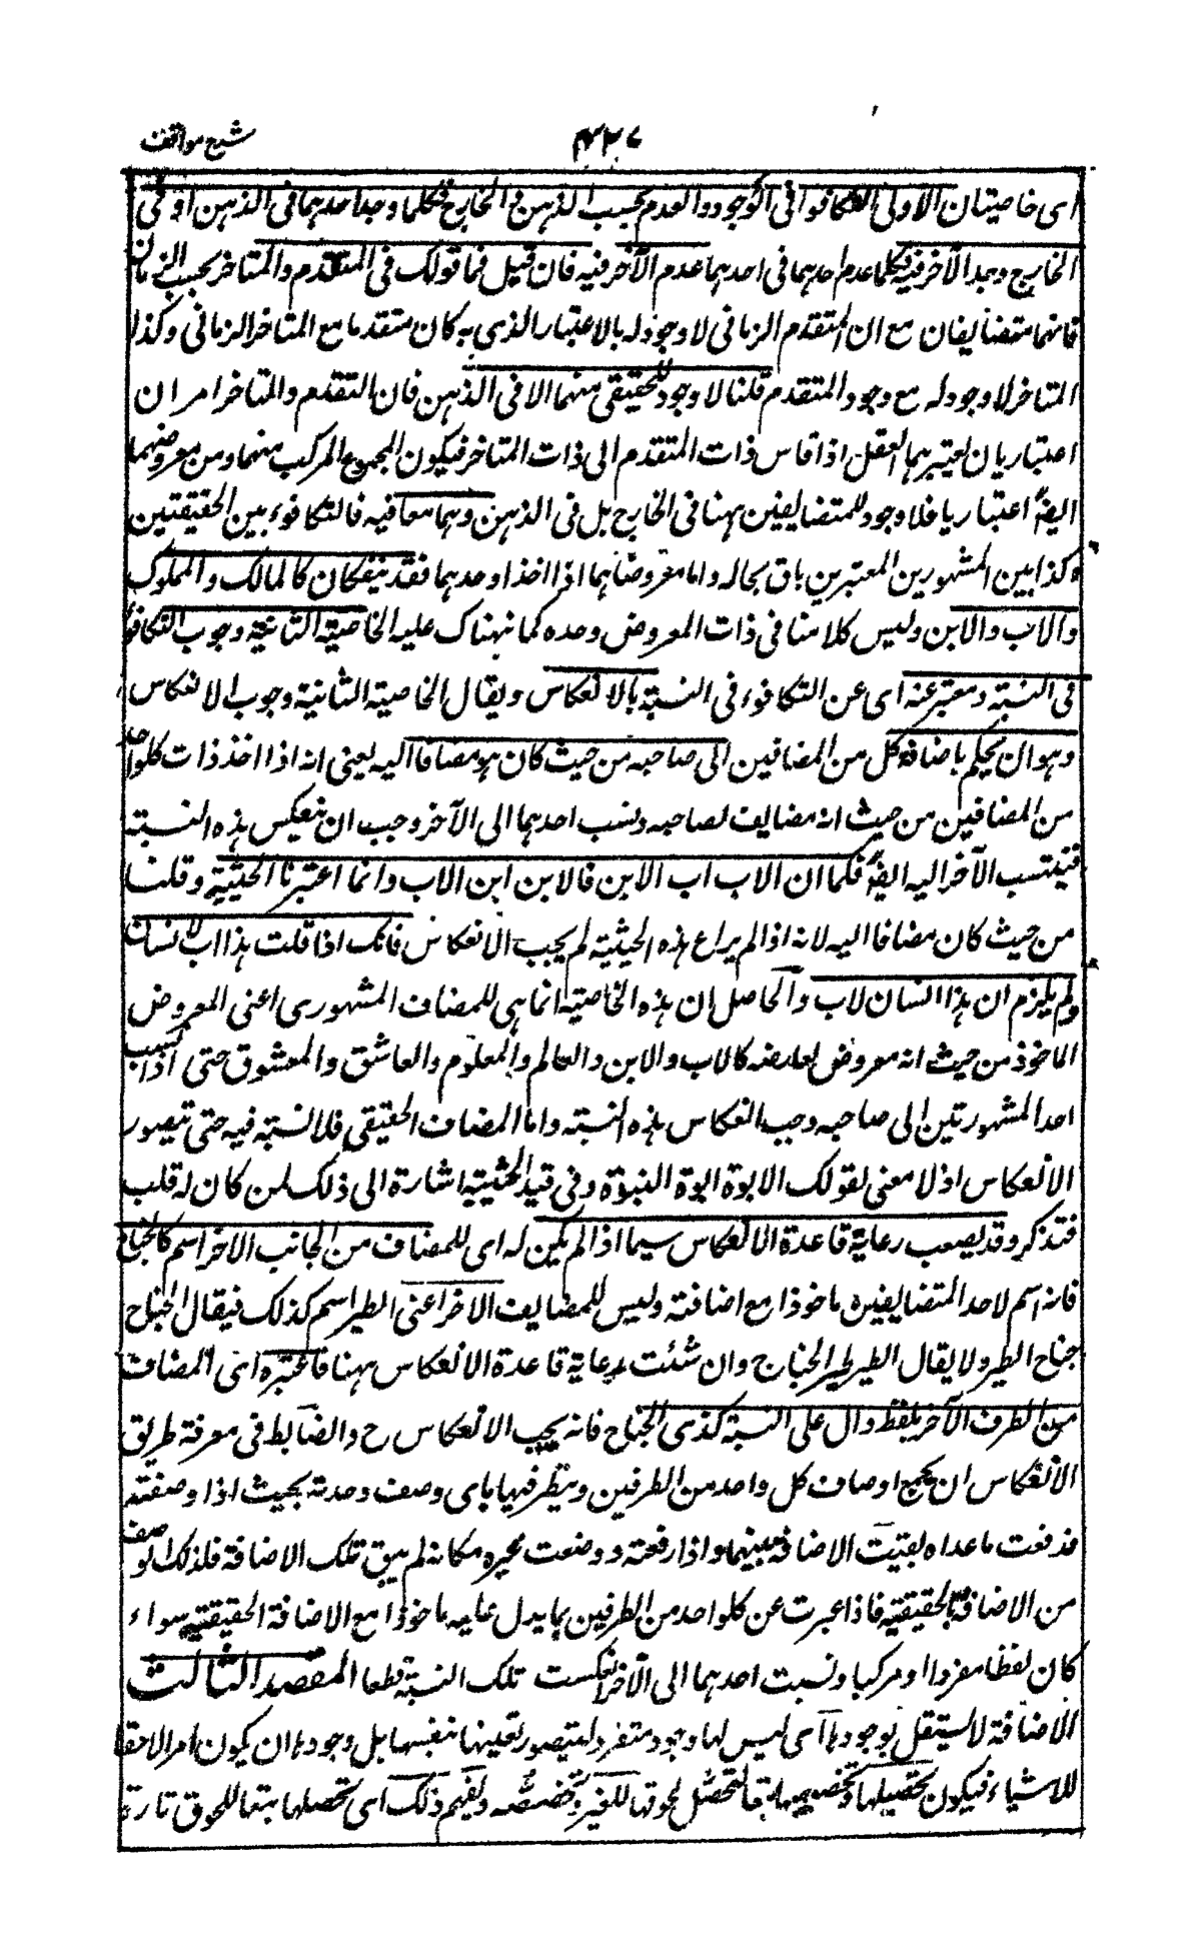 شرح مواقف
٣٢٧
اى خاصيتان الاولى التكافوا فى الوجود والعدم بحسب الذهن والخارج فكلما وجد احدهما فى الذهن او فى
الخارج وجد الآخر فيه وكلما عدم احدهما فى احدهما عدم الآخر فيه فان قيل فما قولك فى المتقدم والمتاخر بحسب الزمان
فانهما متضايفان مع ان المتقدم الزمانى لا وجود له بالاعتبار الذى به كان متقدما مع المتاخر الزمانى وكذا
المتاخر لا وجود له مع وجود المتقدم قلنا لا وجود للحقيقى منهما الا فى الذهن فان التقدم والتاخر امران
اعتباريان يعتبرهما العقل اذا قاس ذات المتقدم الى ذات المتاخر فيكون المجموع المركب منهما ومن معروضهما
ايضً اعتباريا فلا وجود للمتضايفين ههنا فى الخارج بل فى الذهن وهما معا فيه فالتكافوء بين الحقيقتين
وكذا بين المشهورين المعتبرين باق بحاله واما معروضاهما اذا اخذا وحدهما فقد ينفكان كالمالك والمملوك
والاب والابن وليس كلامنا فى ذات المعروض وحده كما نبهناك عليه الخاصية الثانية وجوب التكافؤ
فى النسبة ومعتبر عنه اى عن التكافوء فى النسبة بالانعكاس ويقال الخاصية الثانية وجوب الانعكاس
وهو ان يحكم باضافة كل من المضافين الى صاحبه من حيث كان هو مضافا اليه يعنى انه اذا اخذ ذات كلواحد
من المضافين من حيث انه مضايف لصاحبه ونسب احدهما الى الآخر وجب ان ينعكس هذه النسبة
فينتسب الآخر اليه ايضً فكما ان الاب اب الابن فالابن ابن الاب وانما اعتبرنا الحيثية وقلنا
من حيث كان مضافا اليه لانه اذا لم يراع هذه الحيثية لم يجب الانعكاس فانك اذا قلت هذا اب لانسان
ولم يلزم ان هذا انسان لاب والحاصل ان هذه الخاصية انما هى للمضاف المشهورى اعنى المعروض
الماخوذ من حيث انه معروض لعارضه كالاب والابن والعالم والمعلوم والعاشق والمعشوق حتى اذا نسب
احد المشهورتين الى صاحبه وجب انعكاس هذه النسبة واما المضاف الحقيقى فلا نسبة فيه حتى تيصور
الانعكاس اذ لا معنى لقولك الابوة ابوة البنوة وفى قيد الحيثية اشارة الى ذلك لمن كان له قلب
فتذكر وقد يصعب رعاية قاعدة الانعكاس سيما اذا لم يكن له اى للمضاف من الجانب الاخر اسم كالجناح
فانه اسم لاحد المتضايفين ماخوذا مع اضافته وليس للمضايف الاخر اعنى الطير اسم كذلك فيقال الجناح
جناح الطير ولا يقال الطير طير الجناح وان شئت رعاية قاعدة الانعكاس ههنا فاعتبره اى المضاف
من الطرف الآخر بلفظ دال على النسبة كذى الجناح فانه يجب الانعكاس ح والضابط فى معرفة طريق
الانعكاس ان يجمع اوصاف كل واحد من الطرفين وينظر فيها باى وصف وحدته بحيث اذا وضعته
ورفعت ماعداه بقيت الاضافة بينهما واذا رفعته ووضعت غيره مكانه لم يبق تلك الاضافة فلذلك الوصف
من الاضافة بالحقيقة فاذا عبرت عن كلواحد من الطرفين بما يدل عليه ماخوذا مع الاضافة الحقيقية سواء
كان لفظا مفردا او مركبا ونسبت احدهما الى الآخر انعكست تلك النسبة قطعا المقصد الثالث
الاضافة لا يستقل بوجودها اى ليس لها وجود متفرد ليتصور تعينها بنفسها بل وجودها ان يكون امر الاحقا
للاشياء فيكون تحصيلها وتخصيصها تبعا لتحصل لحوقها للغير وتخصصه ويفهم ذلك اى تحصلها تبعا للحوق تارة